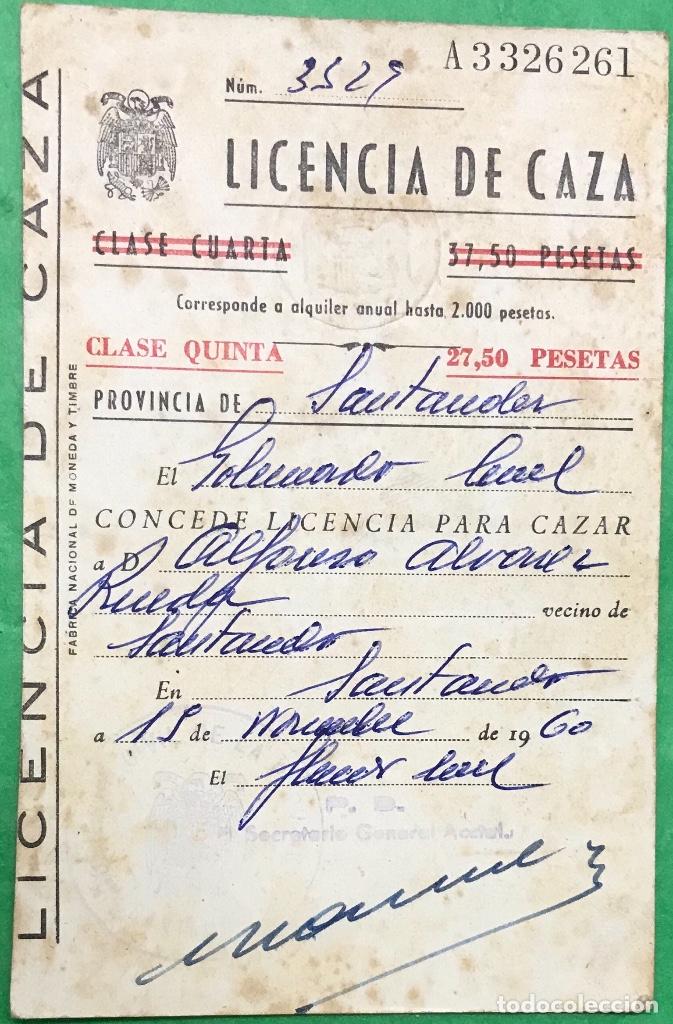 A3326261
Núm. 3529
LICENCIA DE CAZA
CLASE CUARTA 37,50 PESETAS
Corresponde a alquiler anual hasta 2.000 pesetas.
CLASE QUINTA 27,50 PESETAS
PROVINCIA DE Santander
El Gobernador Civil
CONCEDE LICENCIA PARA CAZAR
a D Alfonso Alvarez
Rueda vecino de
Santander
En Santander
a 15 de Noviembre de 1960
El
P. D.
El Secretario General Acctal.
LICENCIA DE CAZA
FÁBRICA NACIONAL DE MONEDA Y TIMBRE
todocoleccion